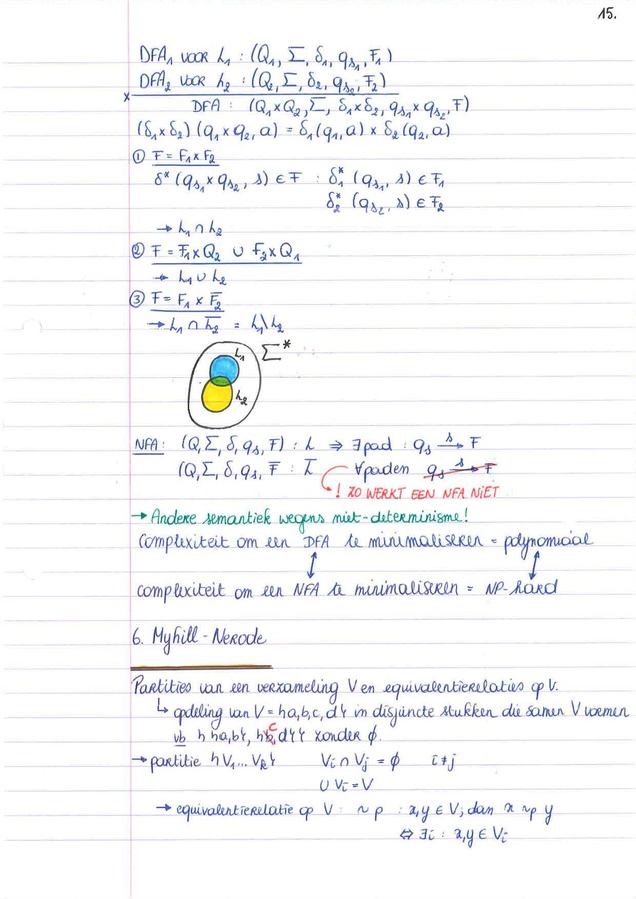 15.
DFA₁ voor L₁ : (Q₁, Σ, δ₁, q_{s₁}, F₁)
DFA₂ voor L₂ : (Q₂, Σ, δ₂, q_{s₂}, F₂)
x
DFA : (Q₁×Q₂, Σ, δ₁×δ₂, q_{s₁}×q_{s₂}, F)
(δ₁×δ₂)(q₁×q₂, a) = δ₁(q₁, a) × δ₂(q₂, a)
① F = F₁×F₂
δ*(q_{s₁}×q_{s₂}, s) ∈ F : δ₁*(q_{s₁}, s) ∈ F₁
δ₂*(q_{s₂}, s) ∈ F₂
→ L₁ ∩ L₂
② F = F₁×Q₂ ∪ F₂×Q₁
→ L₁ ∪ L₂
③ F = F₁ × F̅₂
→ L₁ ∩ L̅₂ = L₁\L₂
L₁ Σ*
L₂
NFA: (Q, Σ, δ, q_s, F) : L ⇒ ∃pad : q_s →ˢ F
(Q, Σ, δ, q_s, F̅ : L̅ ∀paden q_s →ˢ F
! ZO WERKT EEN NFA NIET
→ Andere semantiek wegens niet-determinisme!
Complexiteit om een DFA te minimaliseren = polynomiaal
↕ ↕
complexiteit om een NFA te minimaliseren = NP-hard
6. Myhill-Nerode
Partities van een verzameling V en equivalentierelaties op V.
↳ opdeling van V = {a,b,c,d} in disjuncte stukken die samen V vormen
vb { {a,b}, {c,d}} zonder ∅.
→ partitie {V₁...V_k} V_i ∩ V_j = ∅ i≠j
∪ V_i = V
→ equivalentierelatie op V: ~p : x,y ∈ V; dan x ~p y
⇔ ∃i : x,y ∈ V_i